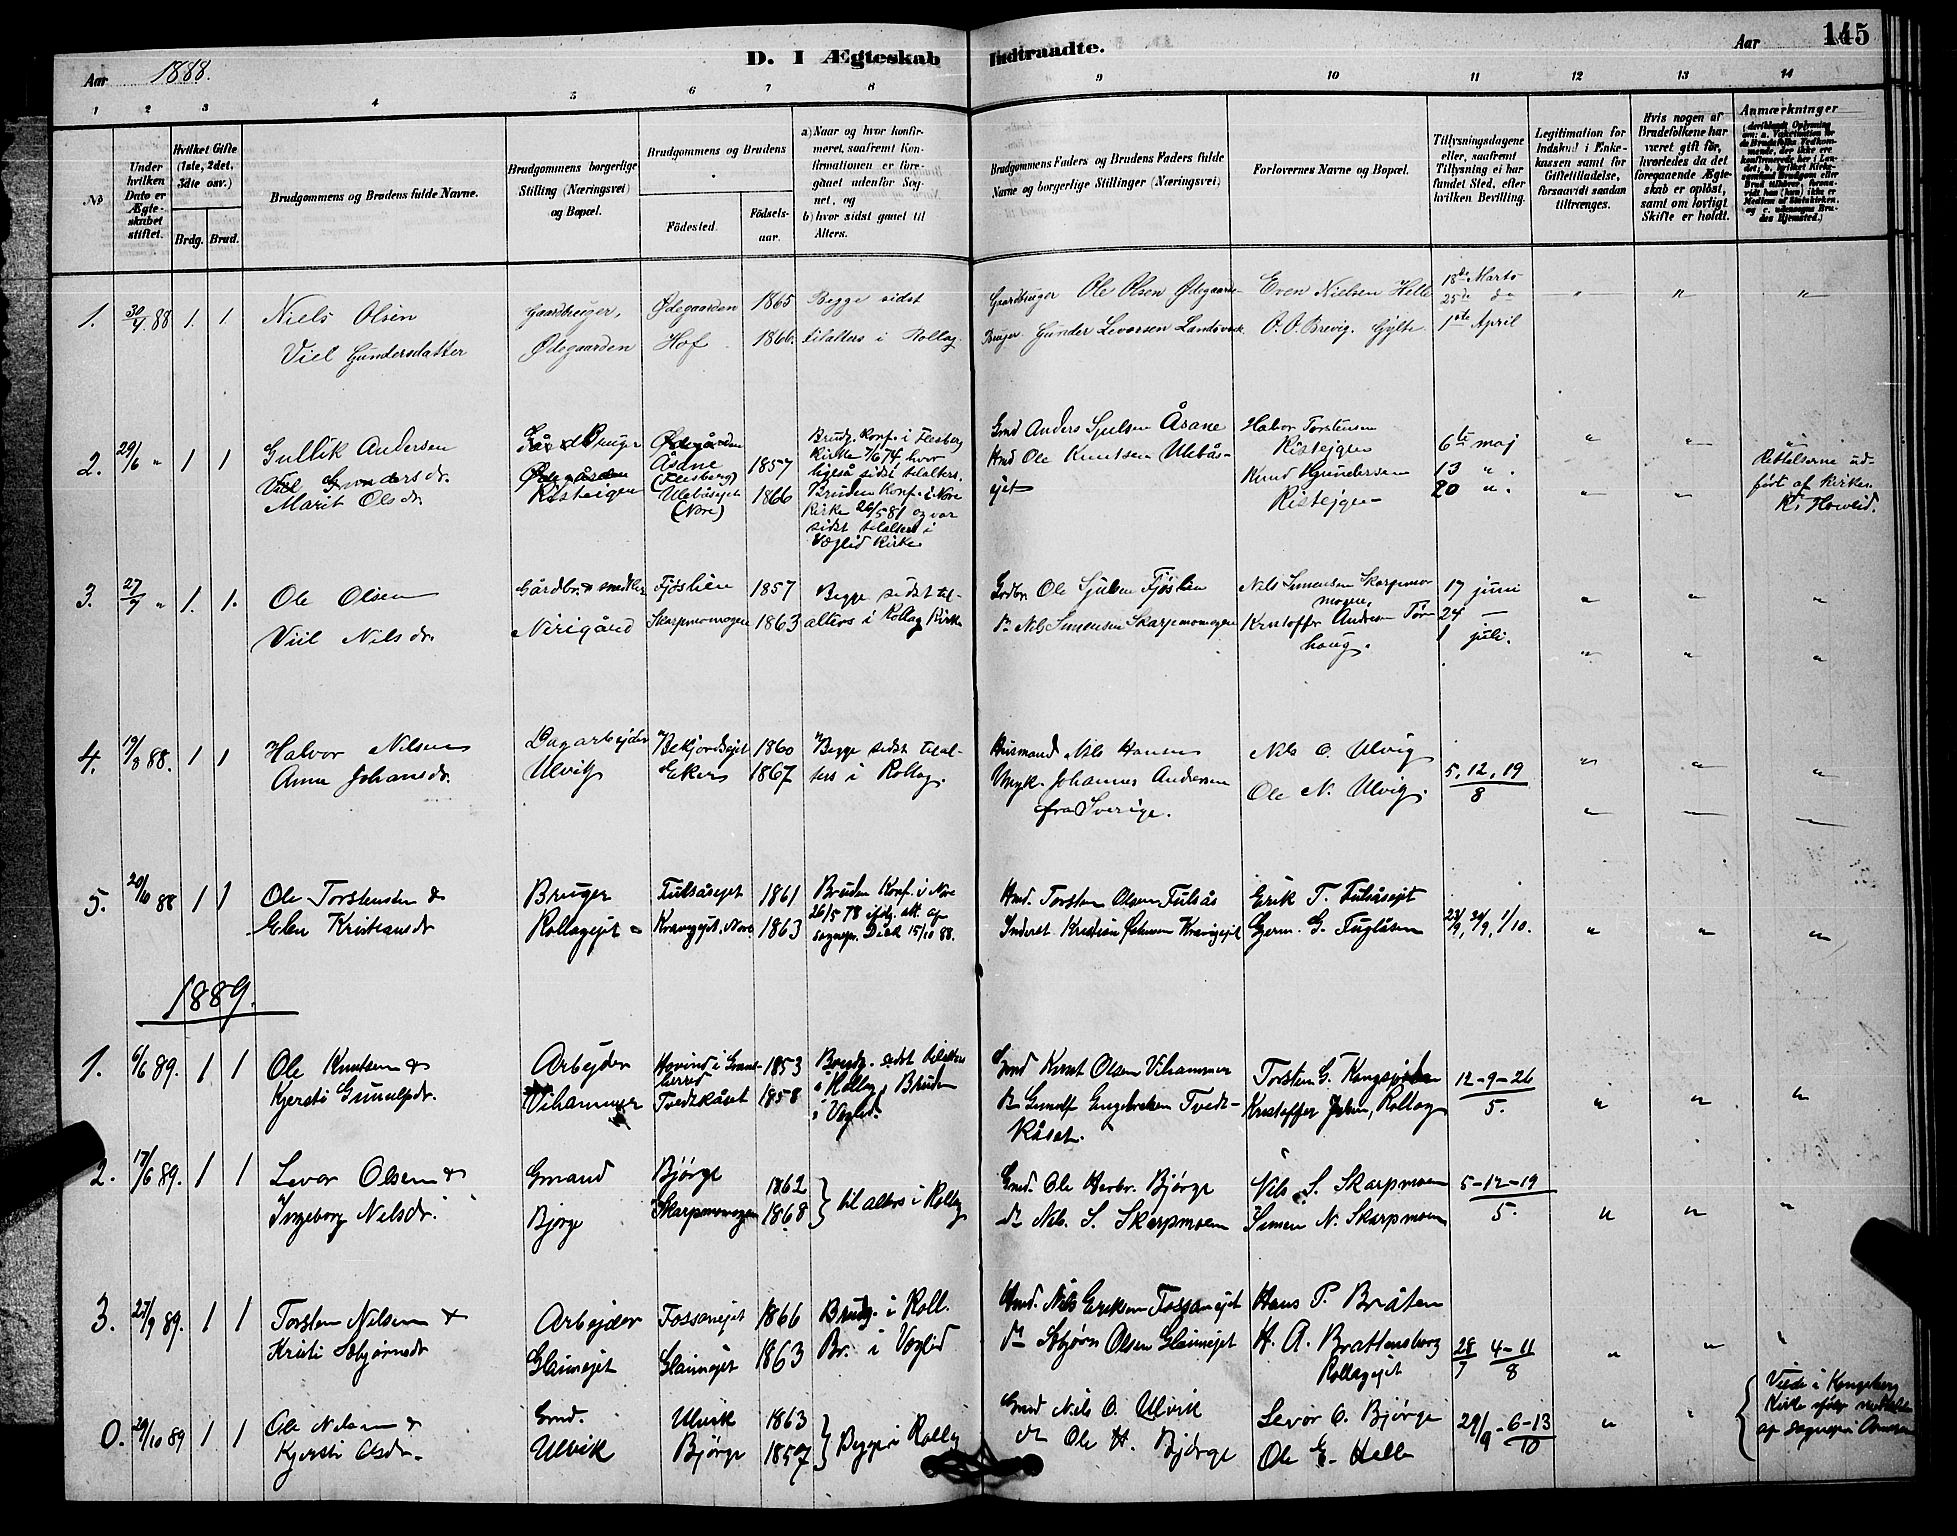 Aar 1888.
D. I Ægteskab Indtraadte.
Aar 145
1 2 3 4 5 6 7 8 9 10 11 12 13 14
No
Under hvilken Dato er Ægteskabet stiftet.
Hvilket Gifte (1ste, 2det, 3die osv.)
Brdg. Brud.
Brudgommens og Brudens fulde Navne.
Brudgommens borgerlige Stilling (Næringsvei) og Bopæl.
Brudgommens og Brudens
Födested.
Födselsaar.
a) Naar og hvor konfirmeret, saafremt Konfirmationen er foregaaet udenfor Sognet, og
b) hvor sidst gaaet til Alters.
Brudgommens Faders og Brudens Faders fulde Navne og borgerlige Stillinger (Næringsvei)
Forlovernes Navne og Bopæl.
Tillysningsdagene eller, saafremt Tillysning ei har fundet Sted, efter hvilken Bevilling.
Legitimation for Indskud i Enkekassen samt for Giftetilladelse, forsaavidt saadan tiltrænges.
Hvis nogen af Brudefolkene har været gift før, hvorledes da det foregaaende Ægteskab er oplöst, samt om lovligt Skifte er holdt.
Anmærkninger
1. 30/4 88 1. 1. Niels Olsen Gaardbruger, Ødegaarden 1865 Begge sidst Gaardbruger Ole Olsen Ødegaarden Even Nielsen Helle 18de Marts
25de do
Viel Gundersdatter Ødegaarden Hof 1866. tilalters i Rollag. Bruger Gunder Levorsen Landsverk O. O. Brevig. Gjylte. 1ste April
2. 29/6 " 1 1 Gullik Andersen Gårdbruger Ødegården Åsane (Flesberg) 1857 Brudg. Konf. i Flesberg Kirke 7/6 74 hvor ligeså sidst tilalters. Gmd Anders Sjulsen Åsane Halvor Torstensen Ristejgen 6te maj
Viel Gundersdr. Marit Olsdr. Ødegården Risteigen Ulebåsejet (Nore) 1866 Bruden Konf. i Nore Kirke 26/5 81 og var sidst tilalters i Veglid Kirke Hmd Ole Knutsen Ulebåsejet Knud Gundersen Ristejgen 13 ". 20 ". Rettelserne udført af Kirkes. K. Hovlid.
3. 27/7 " 1. 1. Ole Olsen Gårdbr. & smedlær Fjøslien 1857 Begge sidst til- Grdbr. Ole Sjulsen Fjøslien Nils Simensen Skarpmomogen, 17 juni
Viil Nilsdr. Nerigård Skarpmomogen 1863 alters i Rollag Kirke do Nils Simensen Skarpmomogen Kristoffer Andersen Tørhaug. 24 — 1 juli.
4. 19/8 88. 1 1 Halvor Nilsen Dagarbejder Bekjordsejet 1860 Begge sidst tilal- Husmand Nils Hansen Nils O. Ulvig 5, 12, 19
Anne Johansdr. Ulvik Eker 1867 ters i Rollag. Johannes Andersen fra Sverige. Ole N. Ulvig. 8
5. 20/10 88 1 1 Ole Torstensen & Bruger Fulsåsejet 1861 Bruden Konf. i Nore Hmd. Torsten Olsen Fulsås Erik T. Fulsåsejet
Elen Kristiansdr Rollagejet 1863 26/5 78 ifølg. att. af sognepr. Dick 15/10 88. Inderst Kristian Kravigejet Germ. G. Fuglåsen 23/9, 30/9, 7/10.
1889.
1. 6/6 89. 1 1 Ole Knutsen & Arbejder Hovind i Gransherred 1853 Brudg. sidst tilalters Gmd Knut Olsen Vihammer Torsten G. 12-9-26
Kjersti Gunulfsdr. Vihammer Tvedtkåset 1858 i Rollag, Bruden i Veglid. do Gunulf Engebretsen Tvedtkåset. Kristoffer Rollag 5.
2. 17/6 89. 1 1 Levor Olsen & Gmand Bjørge 1862 } til alters i Rollag Gmd. Ole Herbr. Bjørge Nils S. Skarpmoen 5-12-19
Ingeborg Nilsdr. Bjørge Skarpmomogen 1868 do Nils S. Skarpmoen Simen N. Skarpmoen 5.
3. 27/9 89. 1 1 Torsten Nilsen & Arbejder Fossanejet 1866 Brudg. i Roll. Hmd. Nils Eriksen Fossanejet Hans P. Bråten
Kristi Asbjørnsdr Glaimejet Glaimejet 1863 Br. i Veglid do Asbjørn Olsen Glaimejet H. A. Brattensberg Rollagejet 28/7 4-11/8
0. 29/10 89 1 1 Ole Nilsen & Gmd. Ulvik 1863 } Begge i Rollag Gmd Nils O. Ulvik Levor O. Bjørge 29/9-6-13/10 Viede i Kongsberg Kirke
Kjersti Olsdr. Ulvik Bjørge 1857 do Ole H. Bjørge Ole E. Helle